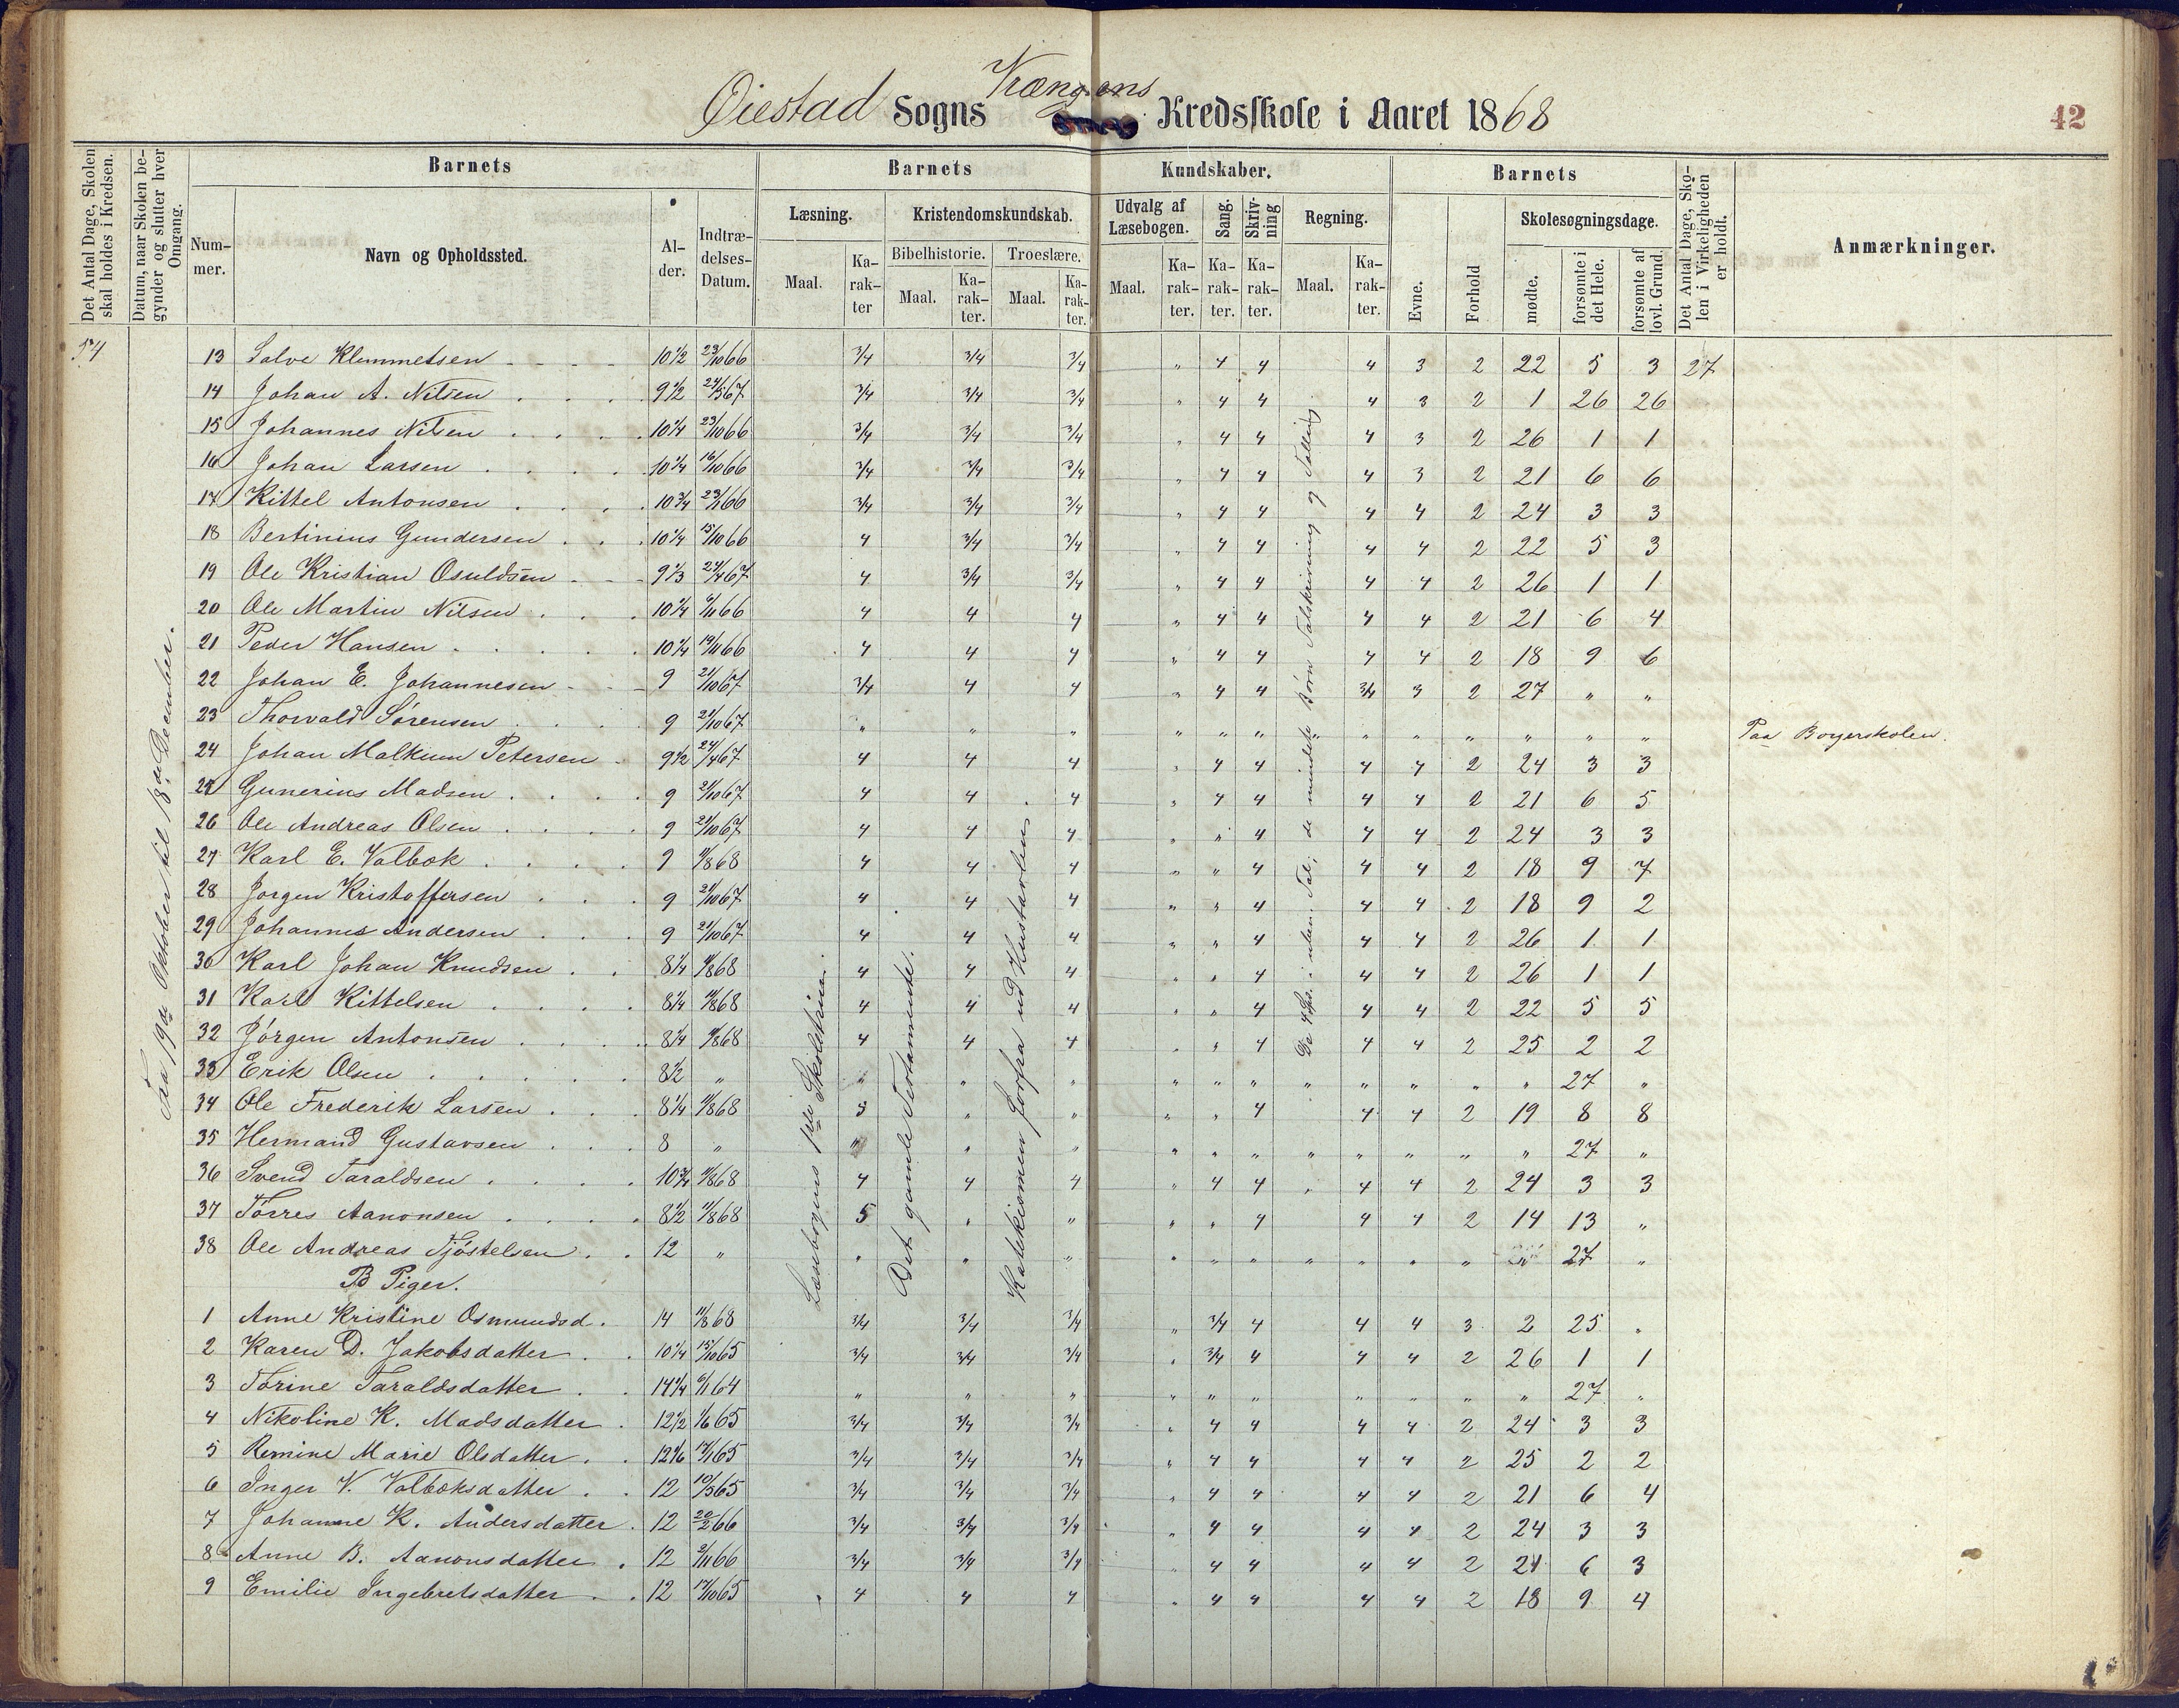 Øiestad Sogns Krængsens Kredsskole i Aaret 1868
42
Det Antal Dage, Skolen skal holdes i Kredsen.
Datum, naar Skolen begynder og slutter hver Omgang.
Barnets
Barnets
Kundskaber.
Barnets
Det Antal Dage, Skolen i Virkeligheden er holdt.
Anmærkninger.
Nummer.
Navn og Opholdssted.
Alder.
Indtrædelses-Datum.
Læsning.
Kristendomskundskab.
Udvalg af Læsebogen.
Sang.
Skrivning
Regning.
Evne.
Forhold
Skolesøgningsdage.
Bibelhistorie.
Troeslære.
Maal.
Karakter
Maal.
Karakter.
Maal.
Karakter.
Maal.
Karakter.
Karakter.
Karakter.
Maal.
Karakter.
mødte.
forsømte i det Hele.
forsømte af lovl. Grund.
54
Fra 19de Oktober til 18de December.
Læsebogens 1ste Skoletrin.
Det gamle Testamente.
Katekismen forfra ud Hustavlen
De 4 Sps. i uben. Tal; de mindste Børn Talskrivning og Tælling
13 Salve Klemmetsen 10 1/2 23/10 66 3/4 3/4 3/4 " 4 4 4 3 2 22 5 3 27
14 Johan A. Nilsen 9 1/2 24/5 67 3/4 3/4 3/4 " 4 4 4 3 2 1 26 26
15 Johannes Nilsen 10 1/4 23/10 66 3/4 3/4 3/4 " 4 4 4 3 2 26 1 1
16 Johan Larsen 10 1/4 16/10 66 3/4 3/4 3/4 " 4 4 4 3 2 21 6 6
17 Kittel Antonsen 10 3/4 23/1 66 3/4 3/4 3/4 " 4 4 4 4 2 24 3 3
18 Bertinius Gundersen 10 1/4 15/10 66 4 3/4 3/4 " 4 4 4 4 2 22 5 3
19 Ole Kristian Osuldsen 9 1/3 24/4 67 4 3/4 3/4 " 4 4 4 4 2 26 1 1
20 Ole Martin Nilsen 10 1/4 6/11 66 4 4 4 " 4 4 4 4 2 21 6 4
21 Peder Hansen 10 1/4 19/11 66 4 4 4 " 4 4 4 4 2 18 9 6
22 Johan E. Johannesen 9 21/10 67 3/4 4 4 " 4 4 3/4 3 2 27 " "
23 Thorvald Sørensen 9 21/10 67 " " " " " " " " " " " " " Paa Borgerskolen.
24 Johan Malkum Petersen 9 1/2 24/4 67 4 4 4 " 4 4 4 4 2 24 3 3
25 Gunerius Madsen 9 21/10 67 4 4 4 " 4 4 4 4 2 21 6 5
26 Ole Andreas Olsen 9 21/10 67 4 4 4 " " 4 4 4 2 24 3 3
27 Karl E. Valbok 9 11/8 68 4 4 4 " " 4 4 4 2 18 9 7
28 Jørgen Kristoffersen 9 21/10 67 4 4 4 " " 4 4 4 2 18 9 2
29 Johannes Andersen 9 21/10 67 4 4 4 " " 4 4 4 2 26 1 1
30 Karl Johan Knudsen 8 1/4 11/8 68 4 4 4 " " 4 4 4 2 26 1 1
31 Karl Kittelsen 8 1/4 11/8 68 4 4 4 " " 4 4 4 2 22 5 5
32 Jørgen Antonsen 8 1/4 11/8 68 4 4 4 " " 4 4 4 2 25 2 2
33 Erik Olsen 8 1/2 " " " " " " " " " " " " 27 "
34 Ole Frederik Larsen 8 1/4 11/8 68 5 " " " " 4 4 4 2 19 8 8
35 Hermand Gustavsen 8 " " " " " " " " " " " " 27 "
36 Svend Taraldsen 10 3/4 11/8 68 4 4 4 " 4 4 " 4 4 2 24 3 3
37 Tørres Aanonsen 8 1/2 11/8 68 5 " " " " 4 4 4 2 14 13 "
38 Ole Andreas Tjøstelsen 12 " " " " " " " " " " " " 27 "
B Piger.
1 Anne Kristine Osmundsd. 14 11/8 68 3/4 3/4 3/4 " 3/4 4 4 4 3 2 25 "
2 Karen D. Jakobsdatter 10 1/4 15/10 65 3/4 3/4 3/4 " 3/4 4 4 4 2 26 1 1
3 Torine Taraldsdatter 14 1/4 6/1 64 " " " " " " " " " " 27 "
4 Nikoline K. Madsdatter 12 1/2 1/6 65 3/4 3/4 3/4 " 4 4 4 4 2 24 3 3
5 Remine Marie Olsdatter 12 1/6 17/1 65 3/4 3/4 3/4 " 4 4 4 4 2 25 2 2
6 Inger V. Valboksdatter 12 10/5 65 3/4 3/4 3/4 " 4 4 4 4 2 21 6 4
7 Johanne K. Andersdatter 12 20/2 66 3/4 3/4 3/4 " 4 4 4 4 2 24 3 3
8 Anne B. Aanonsdatter 12 2/11 66 3/4 3/4 3/4 " 4 4 4 4 2 21 6 3
9 Emilie Ingebretsdatter 12 17/10 65 4 4 4 " 4 4 4 4 2 18 9 4